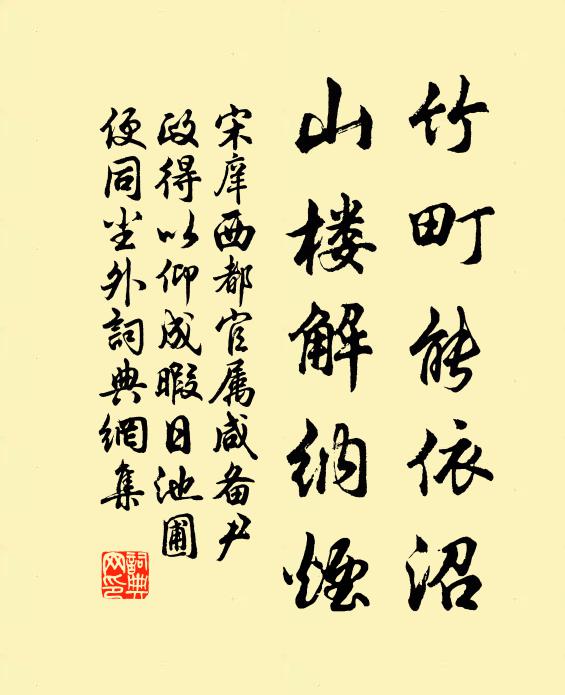 竹町能依沼
山楼解纳烟
宋庠西都官属咸备尹
政得以仰成暇日池圃
便同尘外詞典網集
詞典
网印